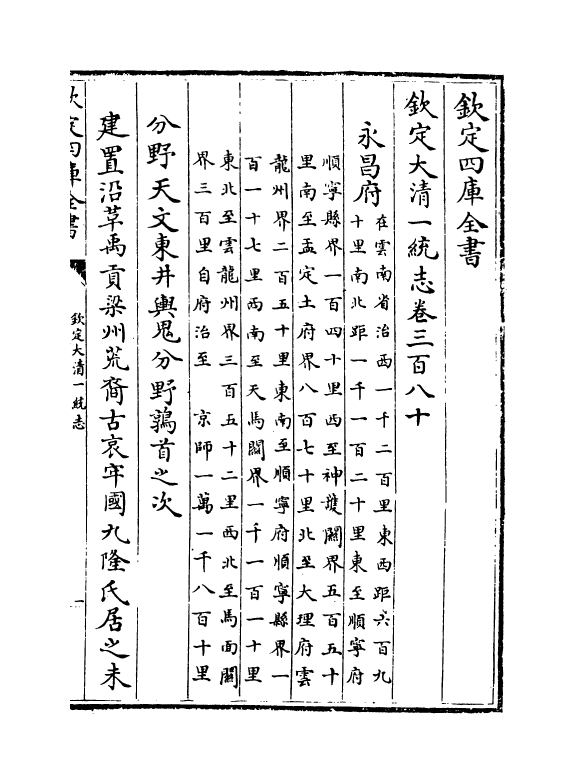 欽定四庫全書
欽定大清一統志卷三百八十
永昌府在雲南省治西一千二百里東西距六百九
十里南北距一千一百二十里東至順寧府
順寧縣界一百四十里西至神護關界五百五十
里南至孟定土府界八百七十里北至大理府雲
龍州界二百五十里東南至順寧府順寧縣界一
百一十七里西南至天馬關界一千一百一十里
東北至雲龍州界三百五十二里西北至馬面關
界三百里自府治至 京師一萬一千八百十里
分野天文東井輿鬼分野鶉首之次
建置沿革禹貢梁州荒裔古哀牢國九隆氏居之未
欽定四庫全書
欽定大清一統志
一